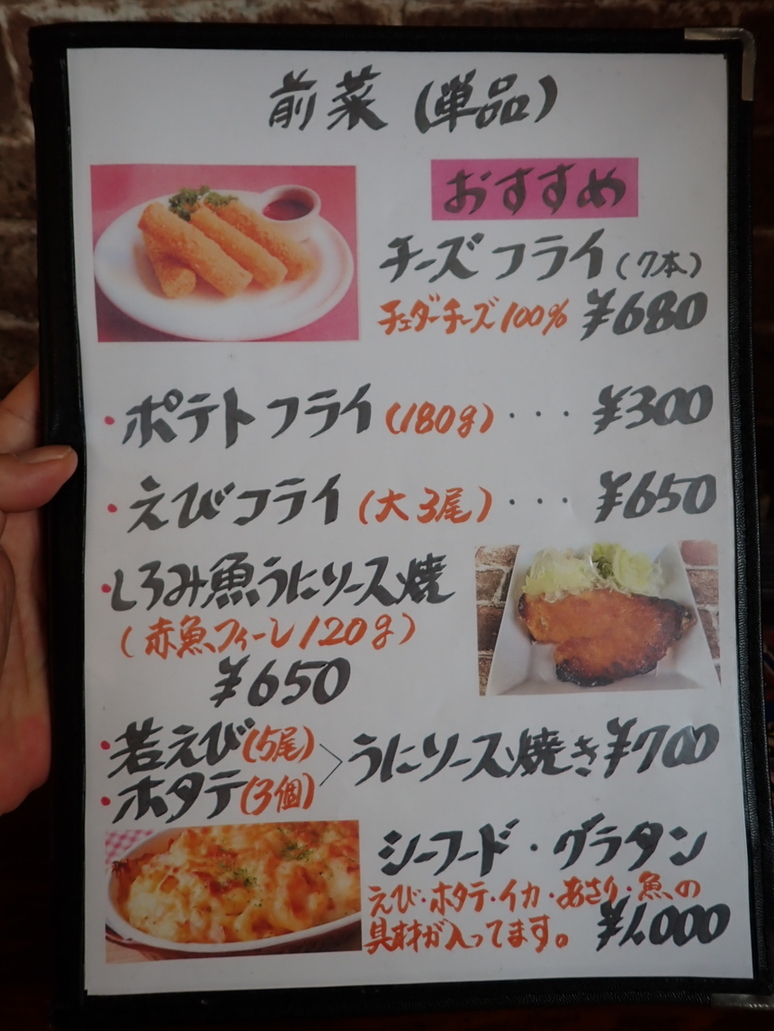 前菜(単品)
おすすめ
チーズフライ(7本)
チェダーチーズ100% ¥680
・ポテトフライ(180g)・・・¥300
・えびフライ(大3尾)・・・¥650
・しろみ魚うにソース焼
(赤魚フィーレ120g)
¥650
・若えび(5尾)
・ホタテ(3個)
>うにソース焼き¥700
シーフード・グラタン
えび・ホタテ・イカ・あさり・魚の
具材が入ってます。 ¥1,000